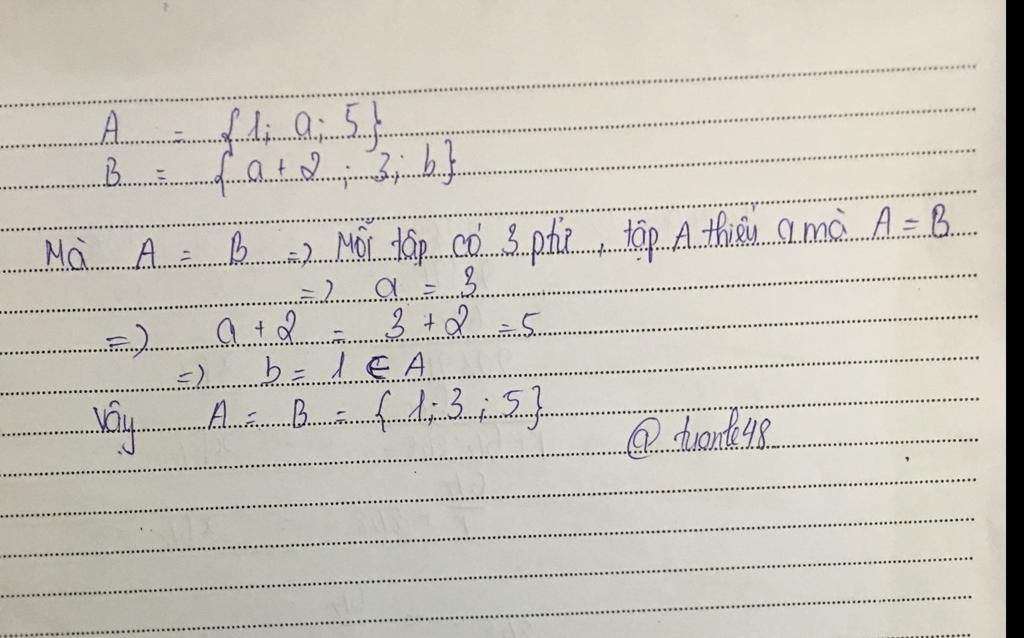 A = {1; a; 5}
B = {a+2; 3; b}
Mà A = B => Mỗi tập có 3 ptử, tập A thiếu a mà A = B
=> a = 3
=> a + 2 = 3 + 2 = 5
=> b = 1 ∈ A
Vậy A = B = {1; 3; 5}
@tuanle48